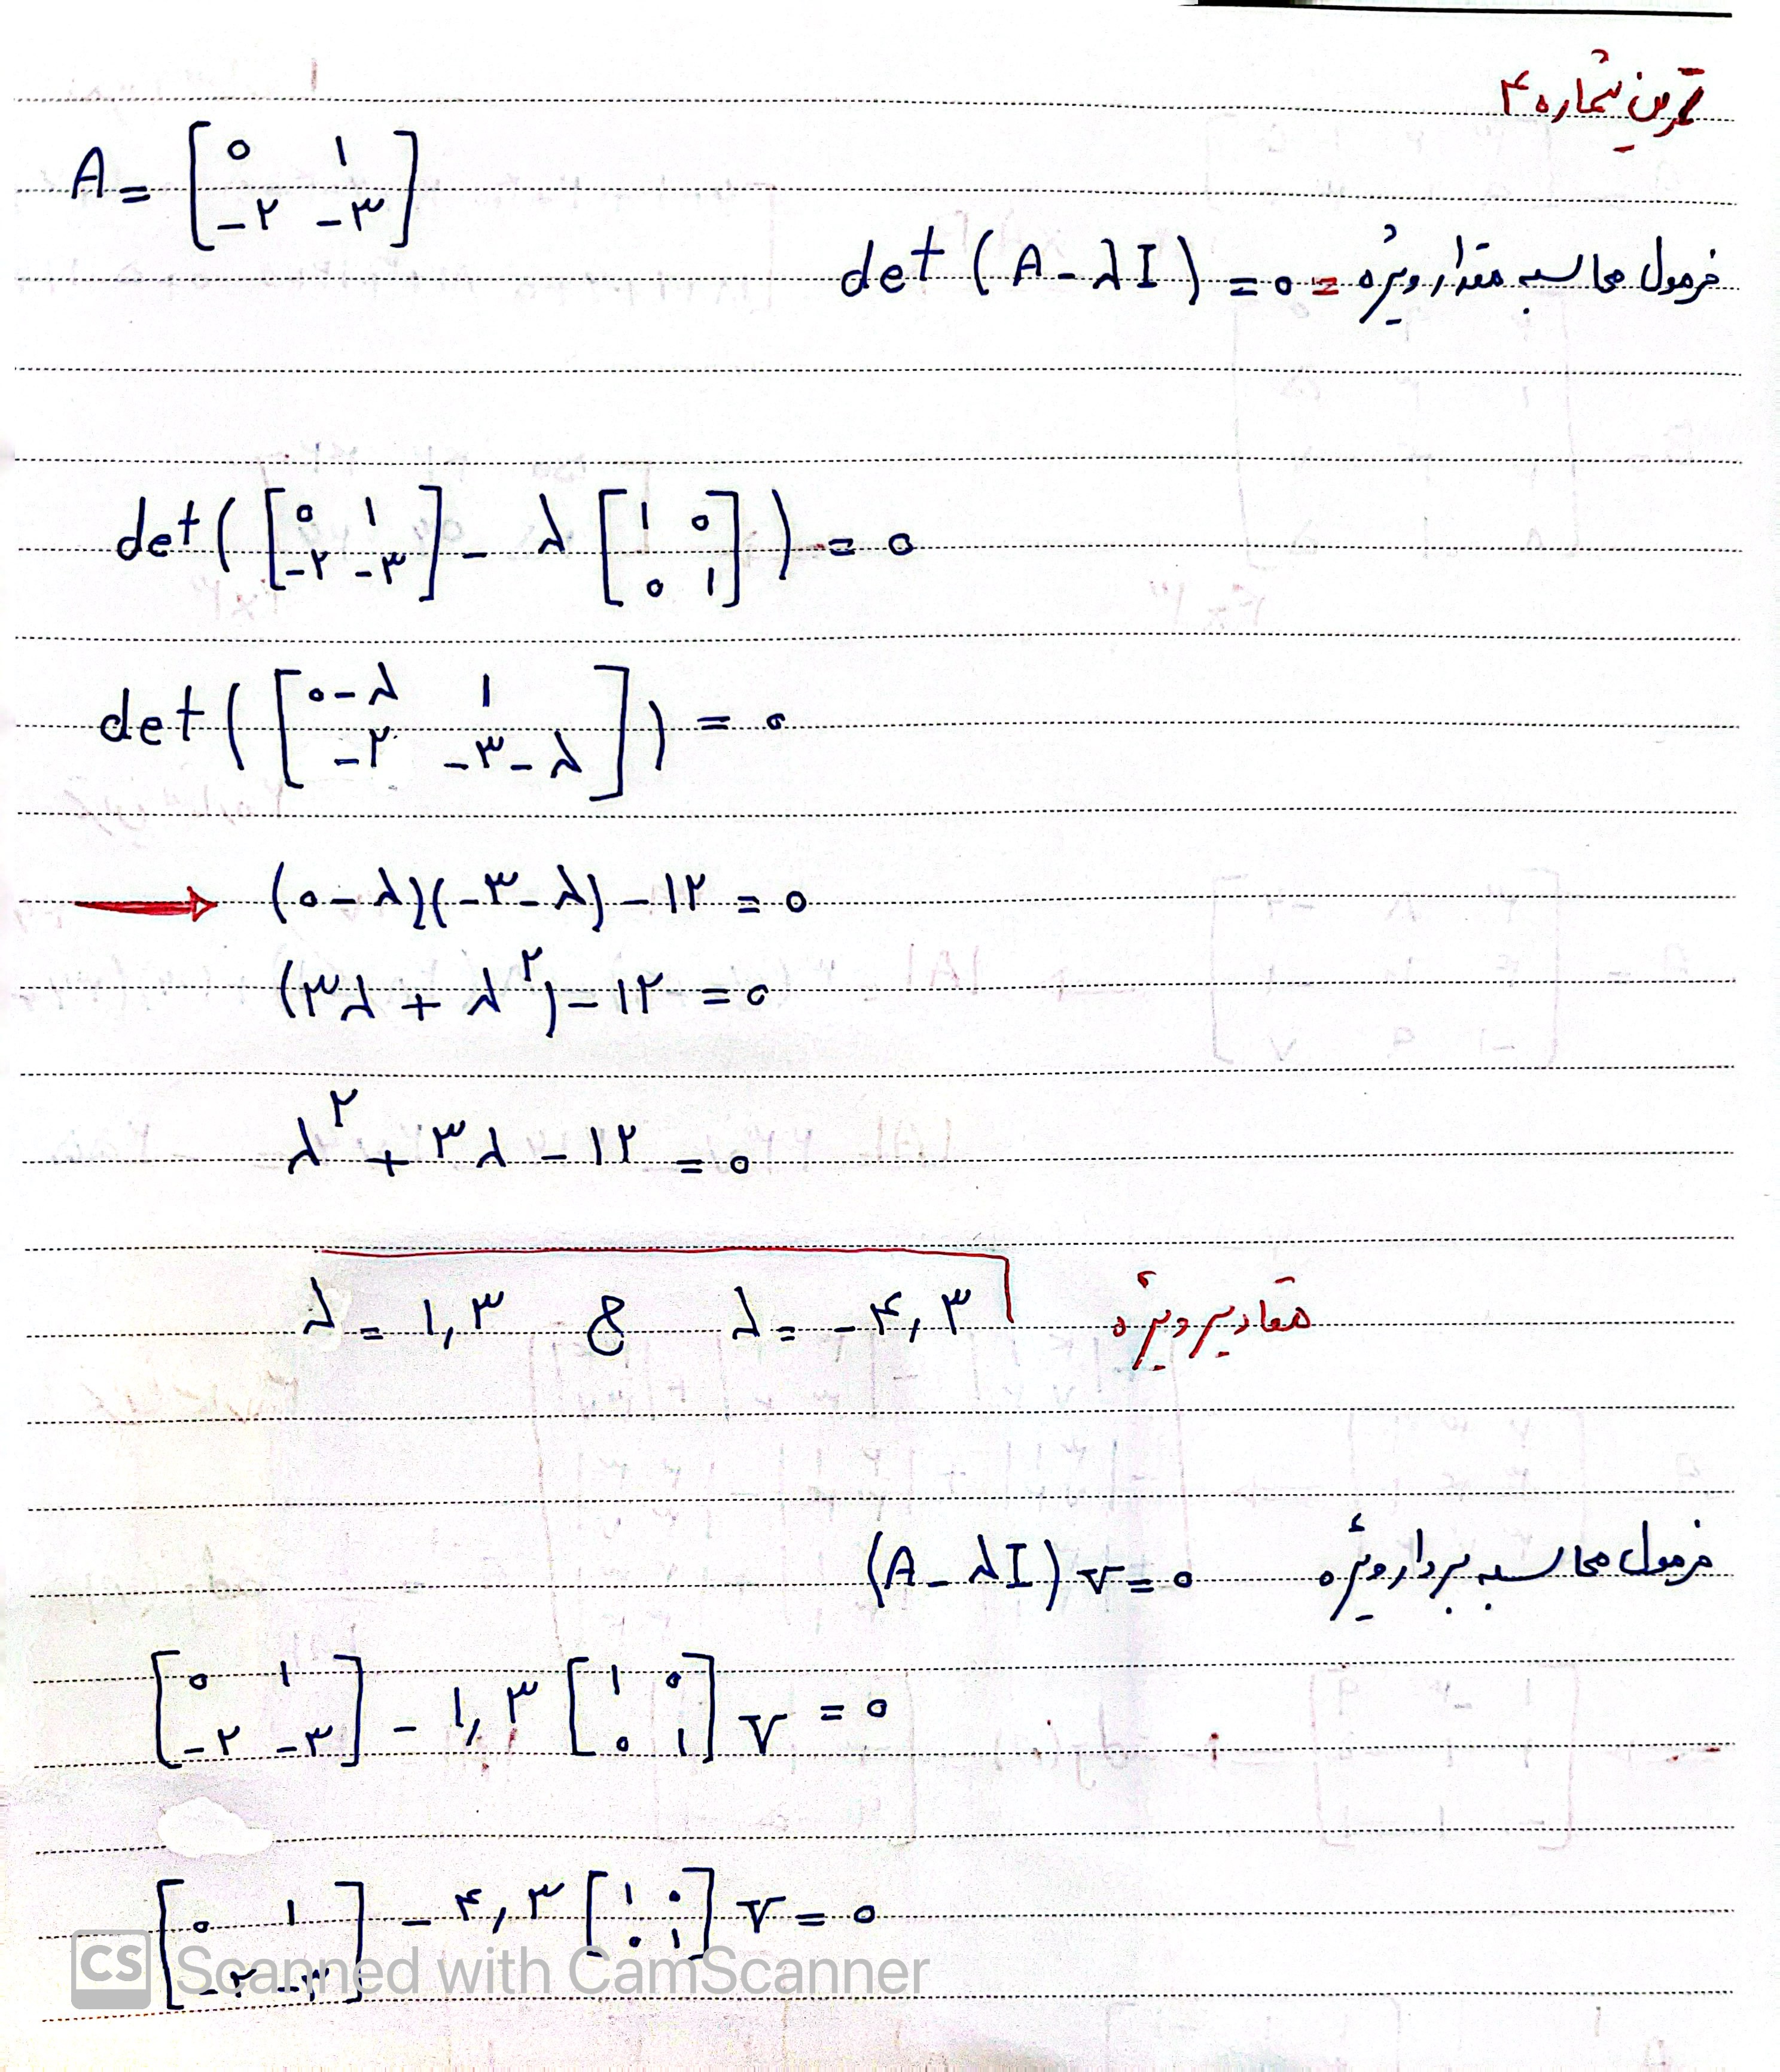 تمرین شماره ۴
A = [ ۰ ۱
-۲ -۳ ]
فرمول محاسبه مقدار ویژه = det (A - λI) = ۰
det ( [ ۰ ۱
-۲ -۳ ] - λ [ ۱ ۰
۰ ۱ ] ) = ۰
det ( [ ۰-λ ۱
-۲ -۳-λ ] ) = ۰
→ (۰-λ)(-۳-λ) - ۱۲ = ۰
(۳λ + λ²) - ۱۲ = ۰
λ² + ۳λ - ۱۲ = ۰
λ = ۱,۳ & λ = -۴,۳ مقادیر ویژه
فرمول محاسبه بردار ویژه (A - λI) v = ۰
[ ۰ ۱
-۲ -۳ ] - ۱,۳ [ ۱ ۰
۰ ۱ ] v = ۰
[ ۰ ۱
-۲ -۳ ] - ۴,۳ [ ۱ ۰
۰ ۱ ] v = ۰
CS Scanned with CamScanner